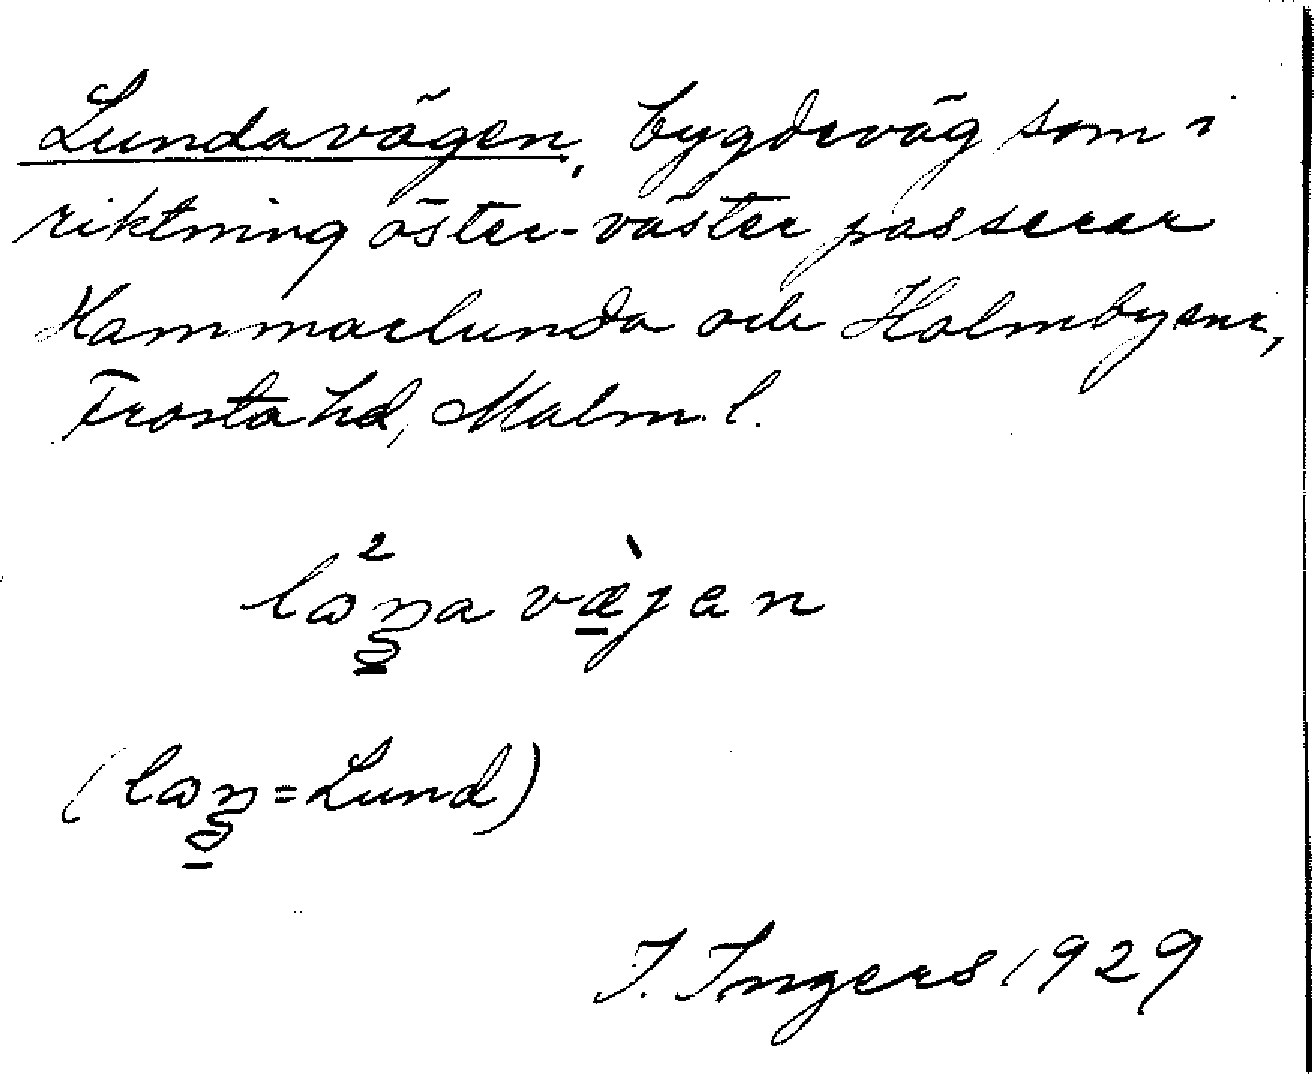 Lundavägen, bygdeväg som i
riktning öster-väster passerar
Hammarlunda och Holmbyarne,
Frosta hd, Malm. l.
= Lund)
I. Ingers 1929